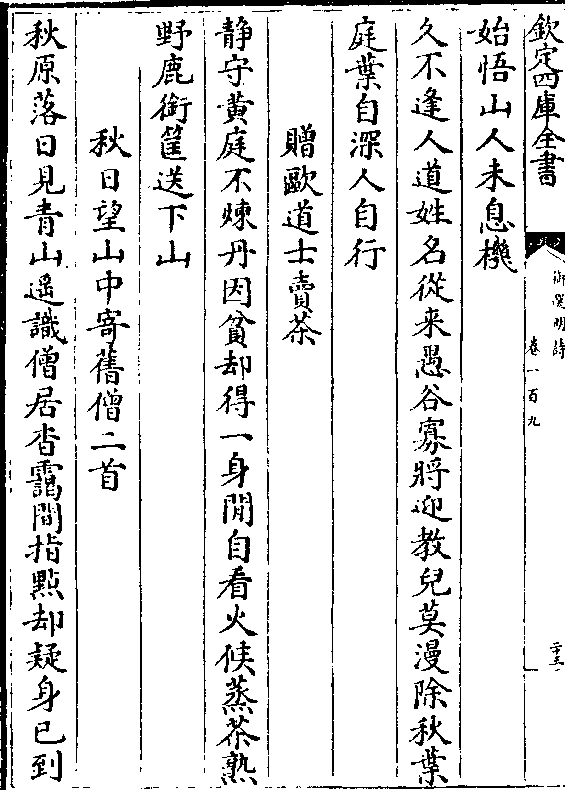 欽定四庫全書
御選明詩
卷一百九
二十三
始悟山人未息機
久不逢人道姓名從来愚谷寡將迎教兒莫漫除秋葉
庭葉自深人自行
贈歐道士賣茶
静守黄庭不煉丹因貧却得一身閒自看火候蒸茶熟
野鹿銜筐送下山
秋日望山中寄舊僧二首
秋原落日見青山遥識僧居杳靄間指點却疑身已到